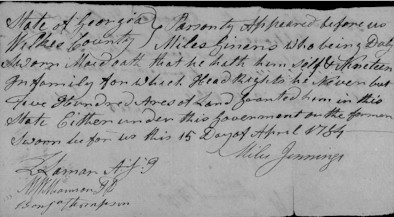 State of Georgia } Personly Appeared before us
Wilkes County } Miles Jinens who being Duly
Sworn Maidoath that he hath him Self & Nineteen
In family for which Head Rights he Never but
five Hundred Acres of Land Granted him in this
State Either under this Government or the former
Sworn to for us this 15 Day of April 1784
Miles Jennings
Z Lamar A J
M Williamson JP
Benjn Thompson